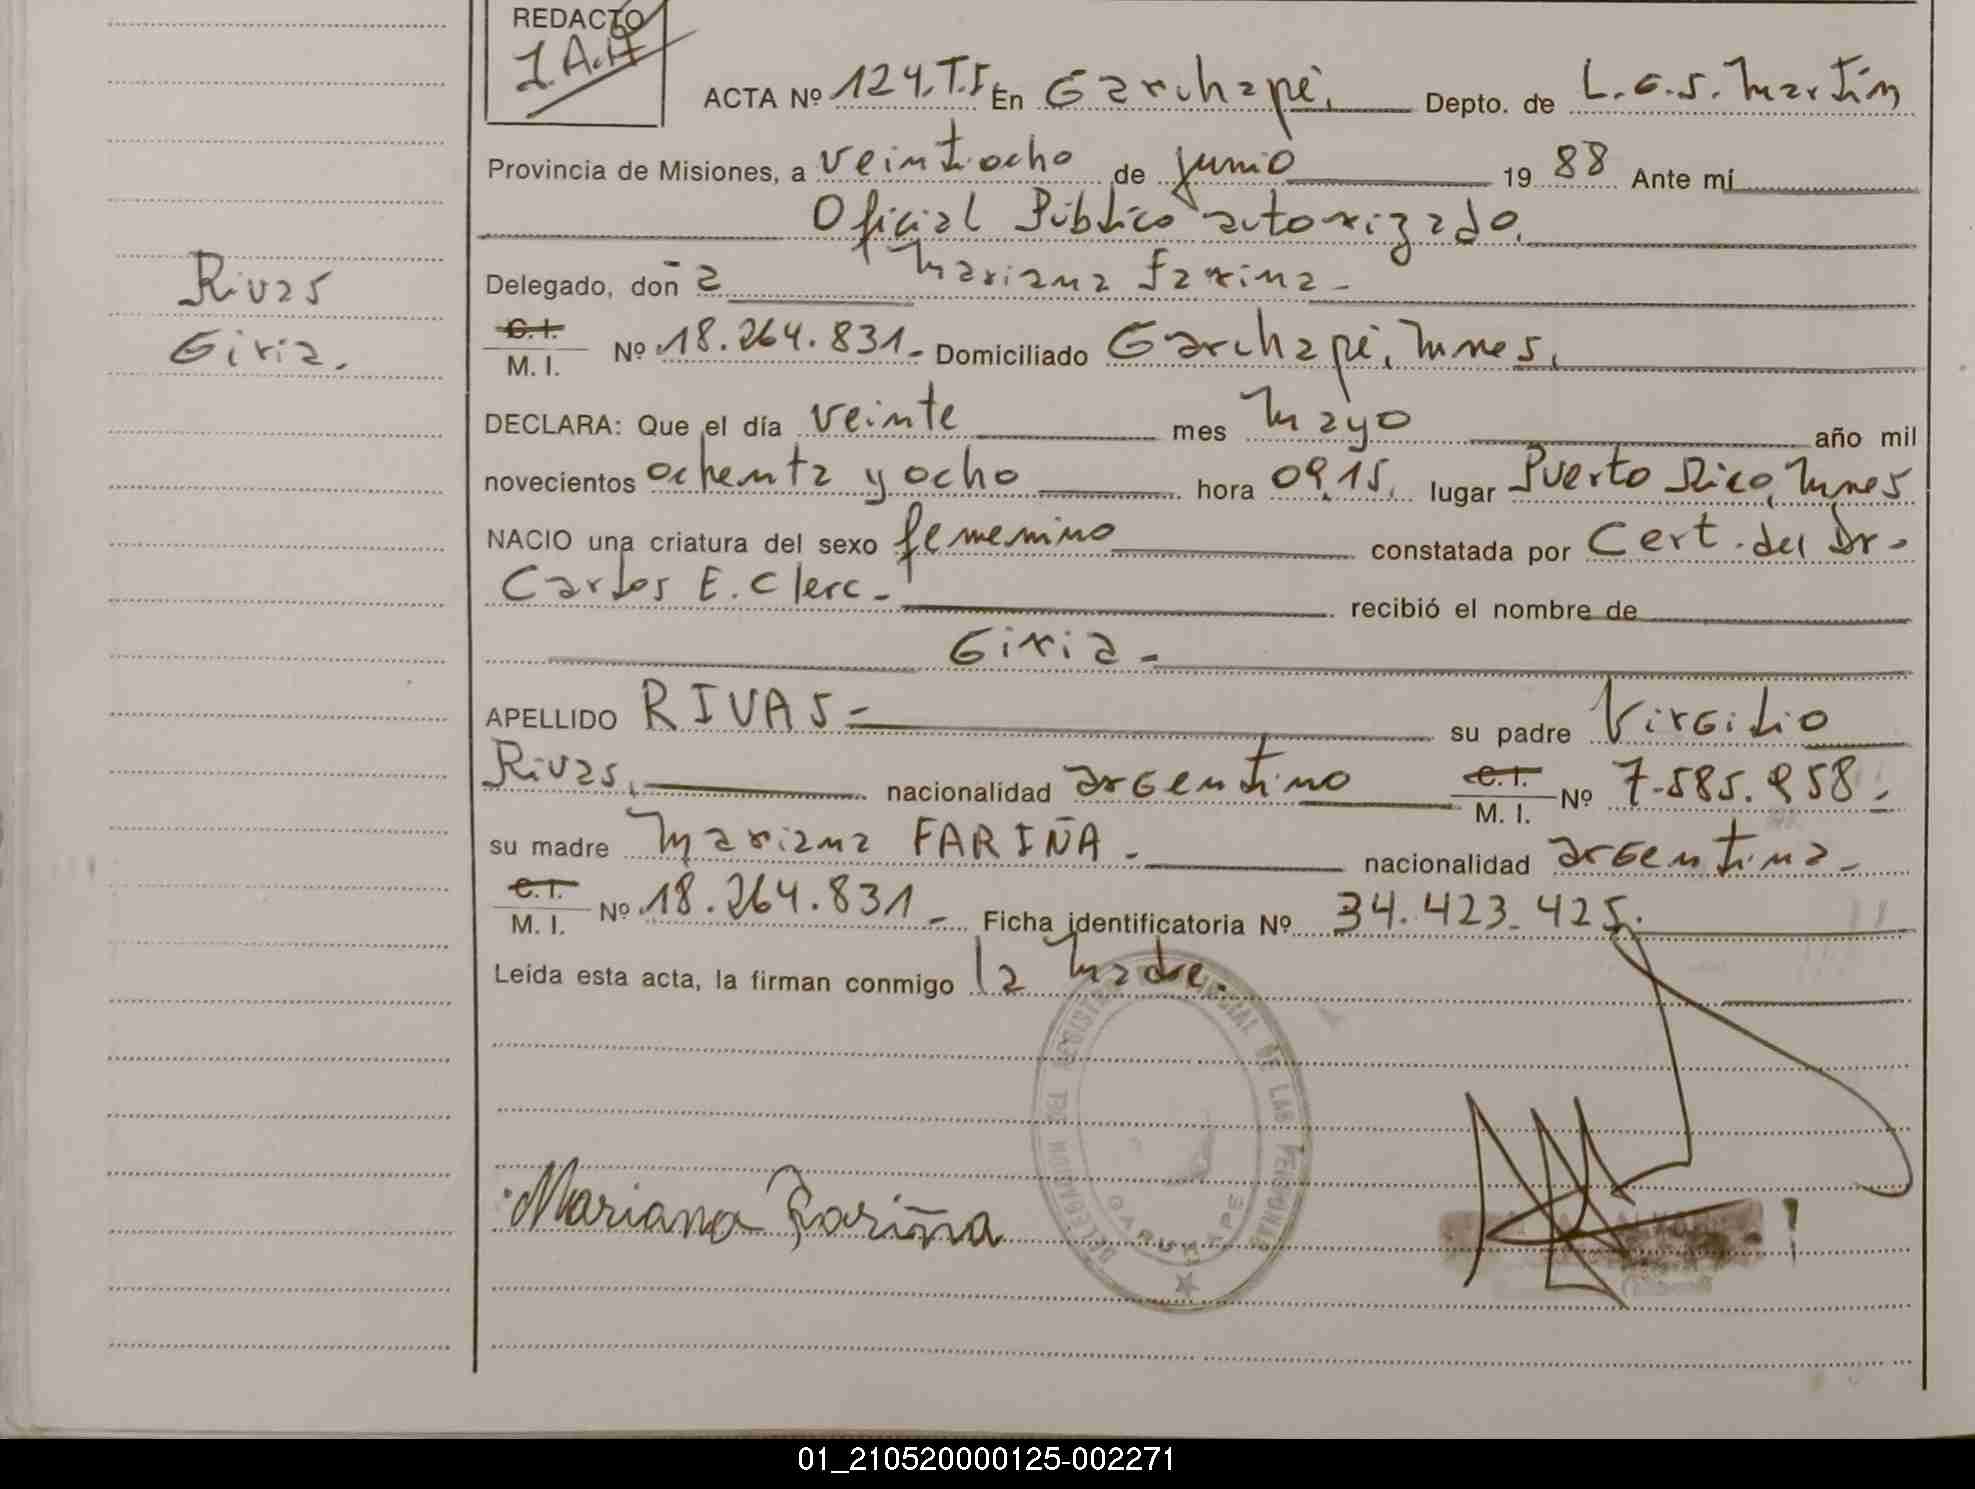 REDACTO
I A.H
ACTA Nº 124.T.I En Garuhapé, Depto. de L.G.S. Martín
Provincia de Misiones, a veintiocho de junio 19 88 Ante mí
Oficial Público autorizado,
Delegado, doña Mariana Farina-
Rivas
C.I. / M.I. Nº 18.264.831- Domiciliado Garuhapé, Mnes,
Giria.
DECLARA: Que el día veinte mes Mayo año mil
novecientos ochenta y ocho hora 09,15, lugar Puerto Rico, Mnes
NACIO una criatura del sexo femenino constatada por Cert. del Dr.
Carlos E. Clerc- recibió el nombre de
Giria-
APELLIDO RIVAS- su padre Virgilio
Rivas, nacionalidad argentino C.I. / M.I. Nº 7.585.858-
su madre Mariana FARIÑA- nacionalidad argentina-
C.I. / M.I. Nº 18.264.831- Ficha identificatoria Nº 34.423.425.
Leida esta acta, la firman conmigo la Madre.
DELEGACION REGISTRO PROVINCIAL DE LAS PERSONAS
GARUHAPE
Mariana Fariña
01_210520000125-002271